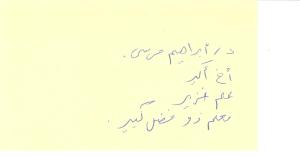 د/ ابراهيم مرسى.
أخ أكبر
علم غزير
معلم ذو فضل كبير.